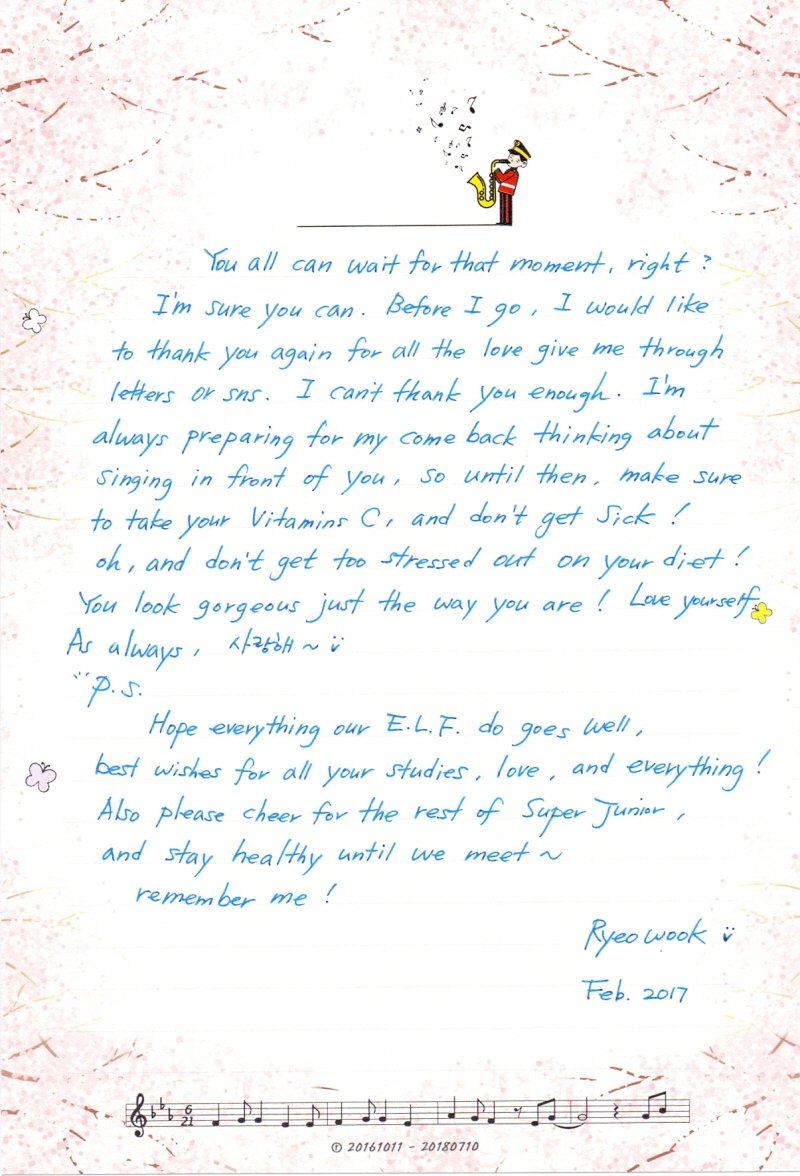 You all can wait for that moment, right?
I'm sure you can. Before I go, I would like
to thank you again for all the love give me through
letters or sns. I can't thank you enough. I'm
always preparing for my come back thinking about
singing in front of you, so until then, make sure
to take your Vitamins C, and don't get Sick!
oh, and don't get too stressed out on your diet!
You look gorgeous just the way you are! Love yourself
As always, 사랑해~
P.S.
Hope everything our E.L.F. do goes well,
best wishes for all your studies, love, and everything!
Also please cheer for the rest of Super Junior,
and stay healthy until we meet~
remember me!
Ryeowook
Feb. 2017
6
21
© 20161011 - 20180710